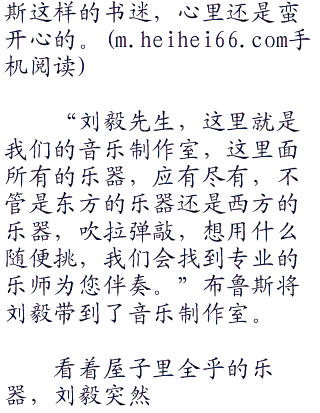 斯这样的书迷，心里还是蛮
开心的。(m.heihei66.com手
机阅读)
“刘毅先生，这里就是
我们的音乐制作室，这里面
所有的乐器，应有尽有，不
管是东方的乐器还是西方的
乐器，吹拉弹敲，想用什么
随便挑，我们会找到专业的
乐师为您伴奏。”布鲁斯将
刘毅带到了音乐制作室。
看着屋子里全乎的乐
器，刘毅突然